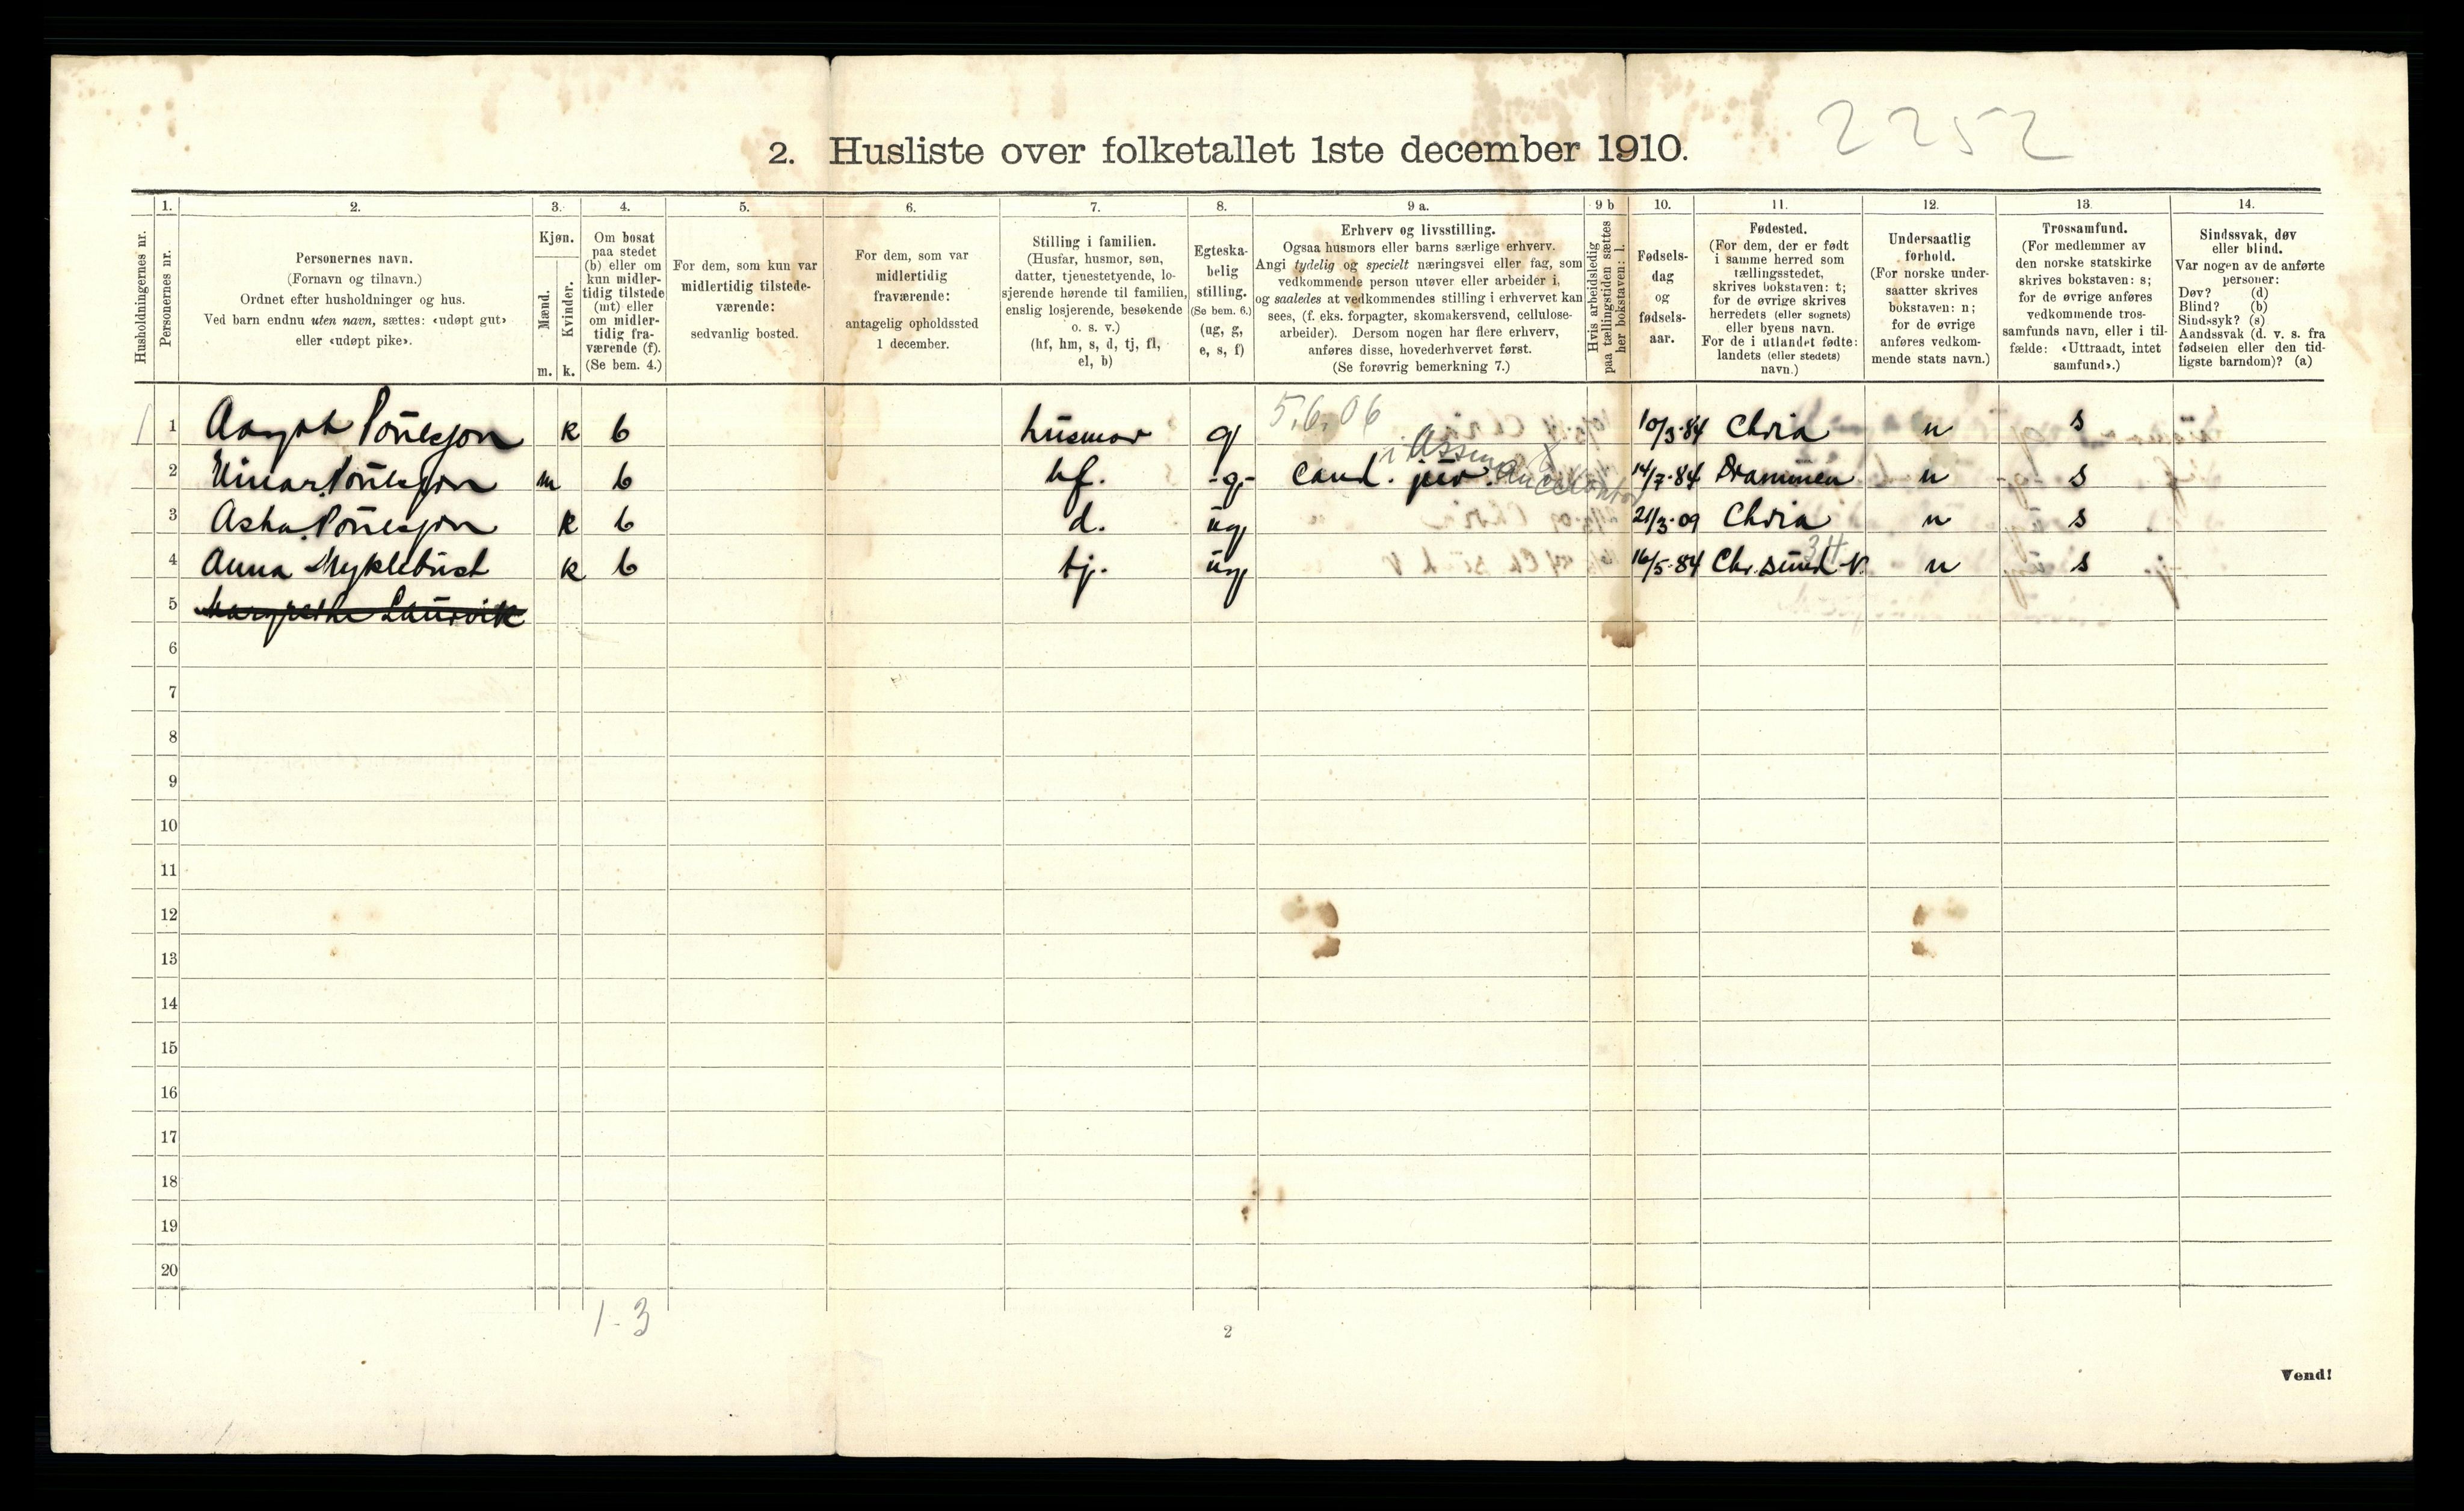 2252
2. Husliste over folketallet 1ste december 1910.
Husholdningernes nr.
1.
Personernes nr.
2.
Personernes navn.
(Fornavn og tilnavn.)
Ordnet efter husholdninger og hus.
Ved barn endnu uten navn, sættes: «udøpt gut»
eller «udøpt pike».
3.
Kjøn.
Mænd.
m.
Kvinder.
k.
4.
Om bosat
paa stedet
(b) eller om
kun midler-
tidig tilstede
(mt) eller
om midler-
tidig fra-
værende (f).
(Se bem. 4.)
5.
For dem, som kun var
midlertidig tilstede-
værende:
sedvanlig bosted.
6.
For dem, som var
midlertidig
fraværende:
antagelig opholdssted
1 december.
7.
Stilling i familien.
(Husfar, husmor, søn,
datter, tjenestetyende, lo-
sjerende hørende til familien,
enslig losjerende, besøkende
o. s. v.)
(hf, hm, s, d, tj, fl,
el, b)
8.
Egteska-
belig
stilling.
(Se bem. 6.)
(ug, g,
e, s, f)
9 a.
Erhverv og livsstilling.
Ogsaa husmors eller barns særlige erhverv.
Angi tydelig og specielt næringsvei eller fag, som
vedkommende person utøver eller arbeider i,
og saaledes at vedkommendes stilling i erhvervet kan
sees, (f. eks. forpagter, skomakersvend, cellulose-
arbeider). Dersom nogen har flere erhverv,
anføres disse, hovederhvervet først.
(Se forøvrig bemerkning 7.)
9 b
Hvis arbeidsledig
paa tællingstiden sættes
her bokstaven: l.
10.
Fødsels-
dag
og
fødsels-
aar.
11.
Fødested.
(For dem, der er født
i samme herred som
tællingsstedet,
skrives bokstaven: t;
for de øvrige skrives
herredets (eller sognets)
eller byens navn.
For de i utlandet fødte:
landets (eller stedets)
navn.)
12.
Undersaatlig
forhold.
(For norske under-
saatter skrives
bokstaven: n;
for de øvrige
anføres vedkom-
mende stats navn.)
13.
Trossamfund.
(For medlemmer av
den norske statskirke
skrives bokstaven: s;
for de øvrige anføres
vedkommende tros-
samfunds navn, eller i til-
fælde: «Uttraadt, intet
samfund».)
14.
Sindssvak, døv
eller blind.
Var nogen av de anførte
personer:
Døv? (d)
Blind? (b)
Sindssyk? (s)
Aandssvak (d. v. s. fra
fødselen eller den tid-
ligste barndom)? (a)
5.6.06
1 1 Aagot Poulsson k b husmor g 10/3.84 Chria n s
i Assurancekontor
2 Einar Poulsson m b hf. -g- cand. jur. 14/7.84 Drammen n s
3 Asta Poulsson k b d. ug 21/3.09 Chria n s
34
4 Anna Myklebust k b tj. ug 16/5.84 Chr.sund N. n s
5 Margrethe Laurvik
6
7
8
9
10
11
12
13
14
15
16
17
18
19
20
1-3
2
Vend!